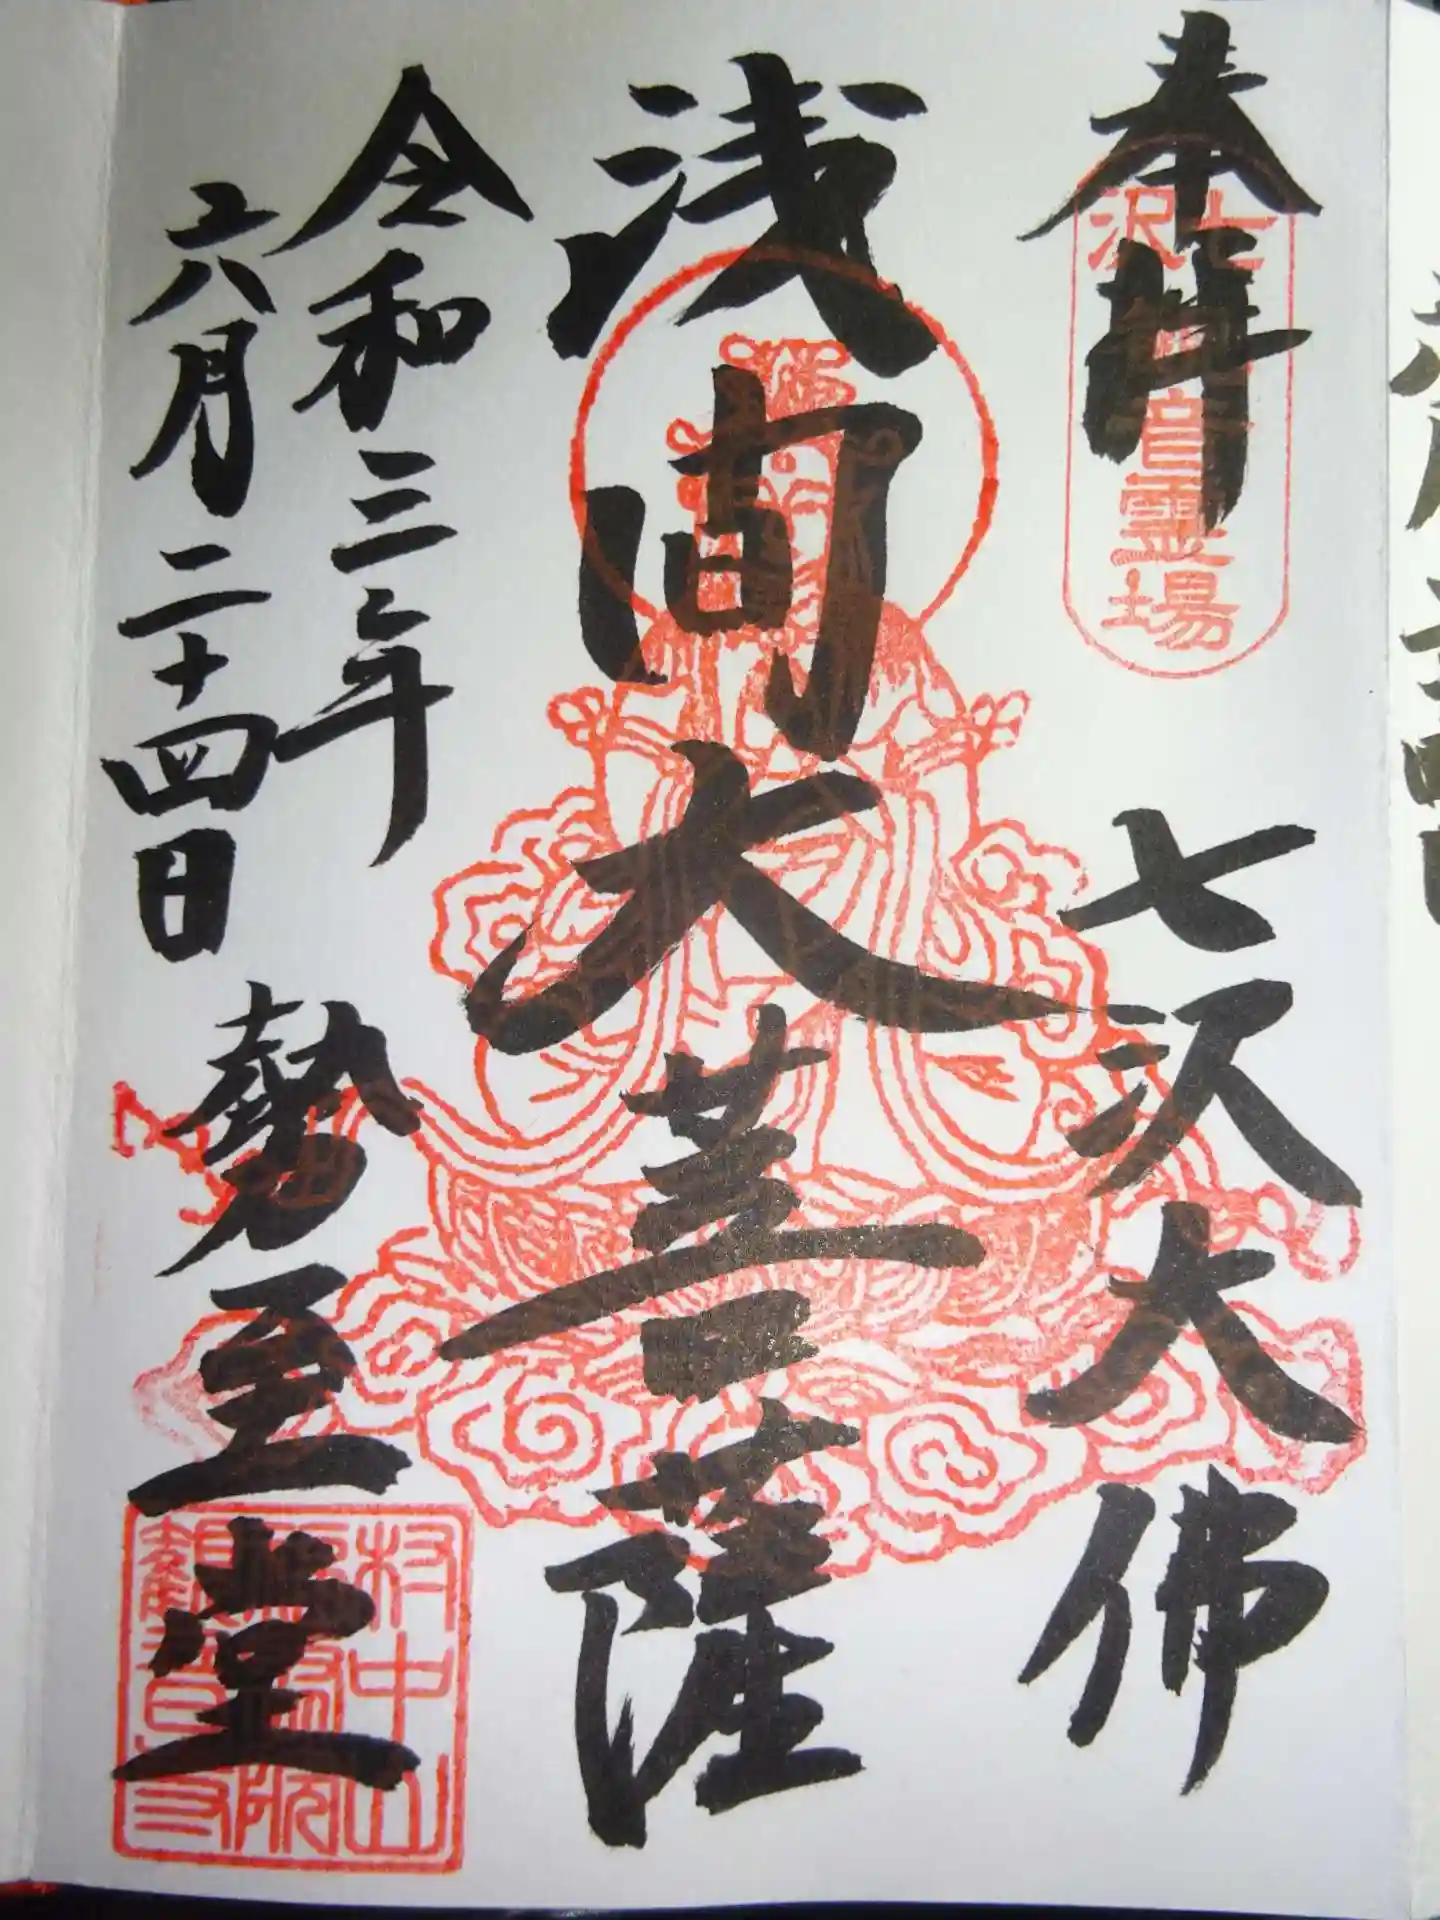 奉拝
七沢観音霊場
七沢大佛
浅間大菩薩
令和三年
六月二十四日
勢至堂
村中山
観音寺